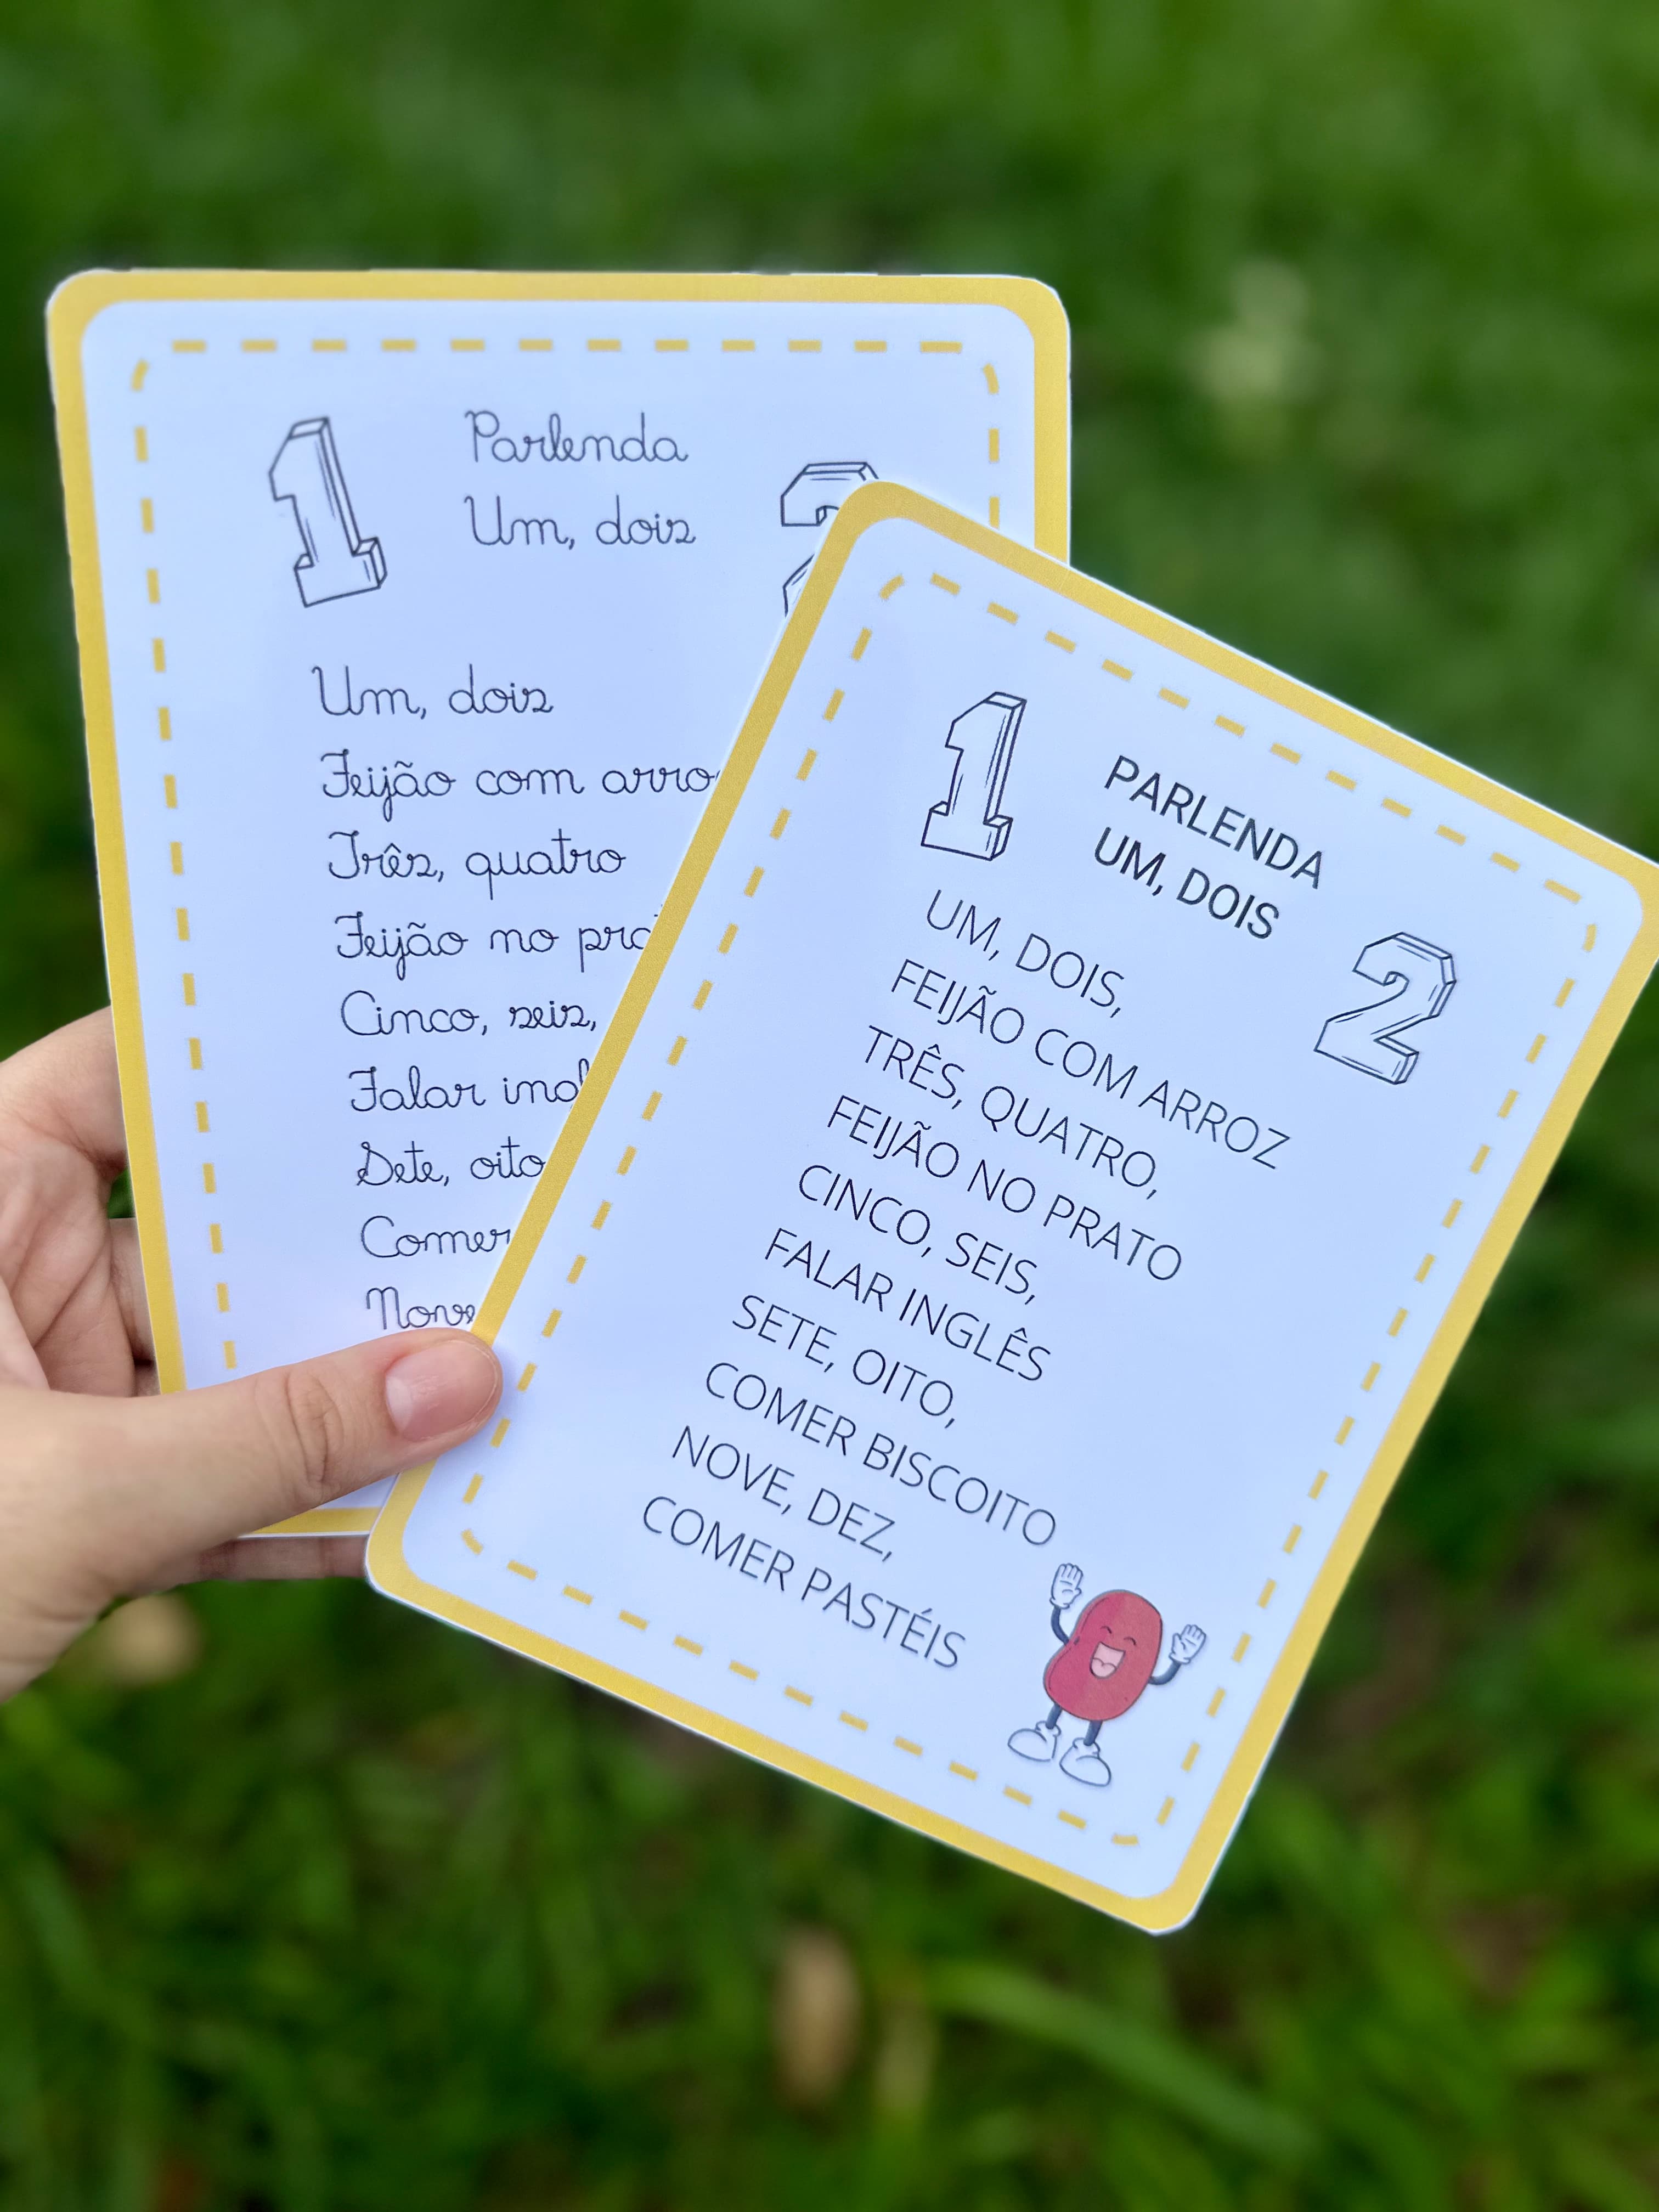 1
Parlenda
Um, dois
Um, dois
Feijão com
Três, quatro
Feijão no
Cinco, seis,
Falar
Sete, oito
Comer
1
PARLENDA
UM, DOIS
2
UM, DOIS,
FEIJÃO COM ARROZ
TRÊS, QUATRO,
FEIJÃO NO PRATO
CINCO, SEIS,
FALAR INGLÊS
SETE, OITO,
COMER BISCOITO
NOVE, DEZ,
COMER PASTÉIS